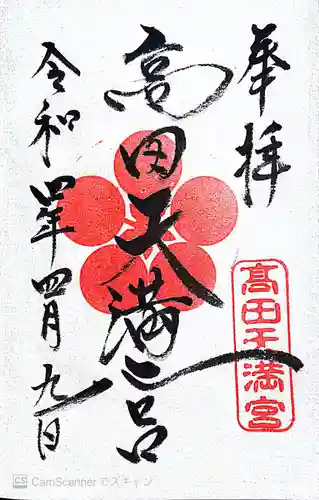 奉拝
髙田天満宮
髙田天満宮
令和四年四月九日
CS CamScannerでスキャン